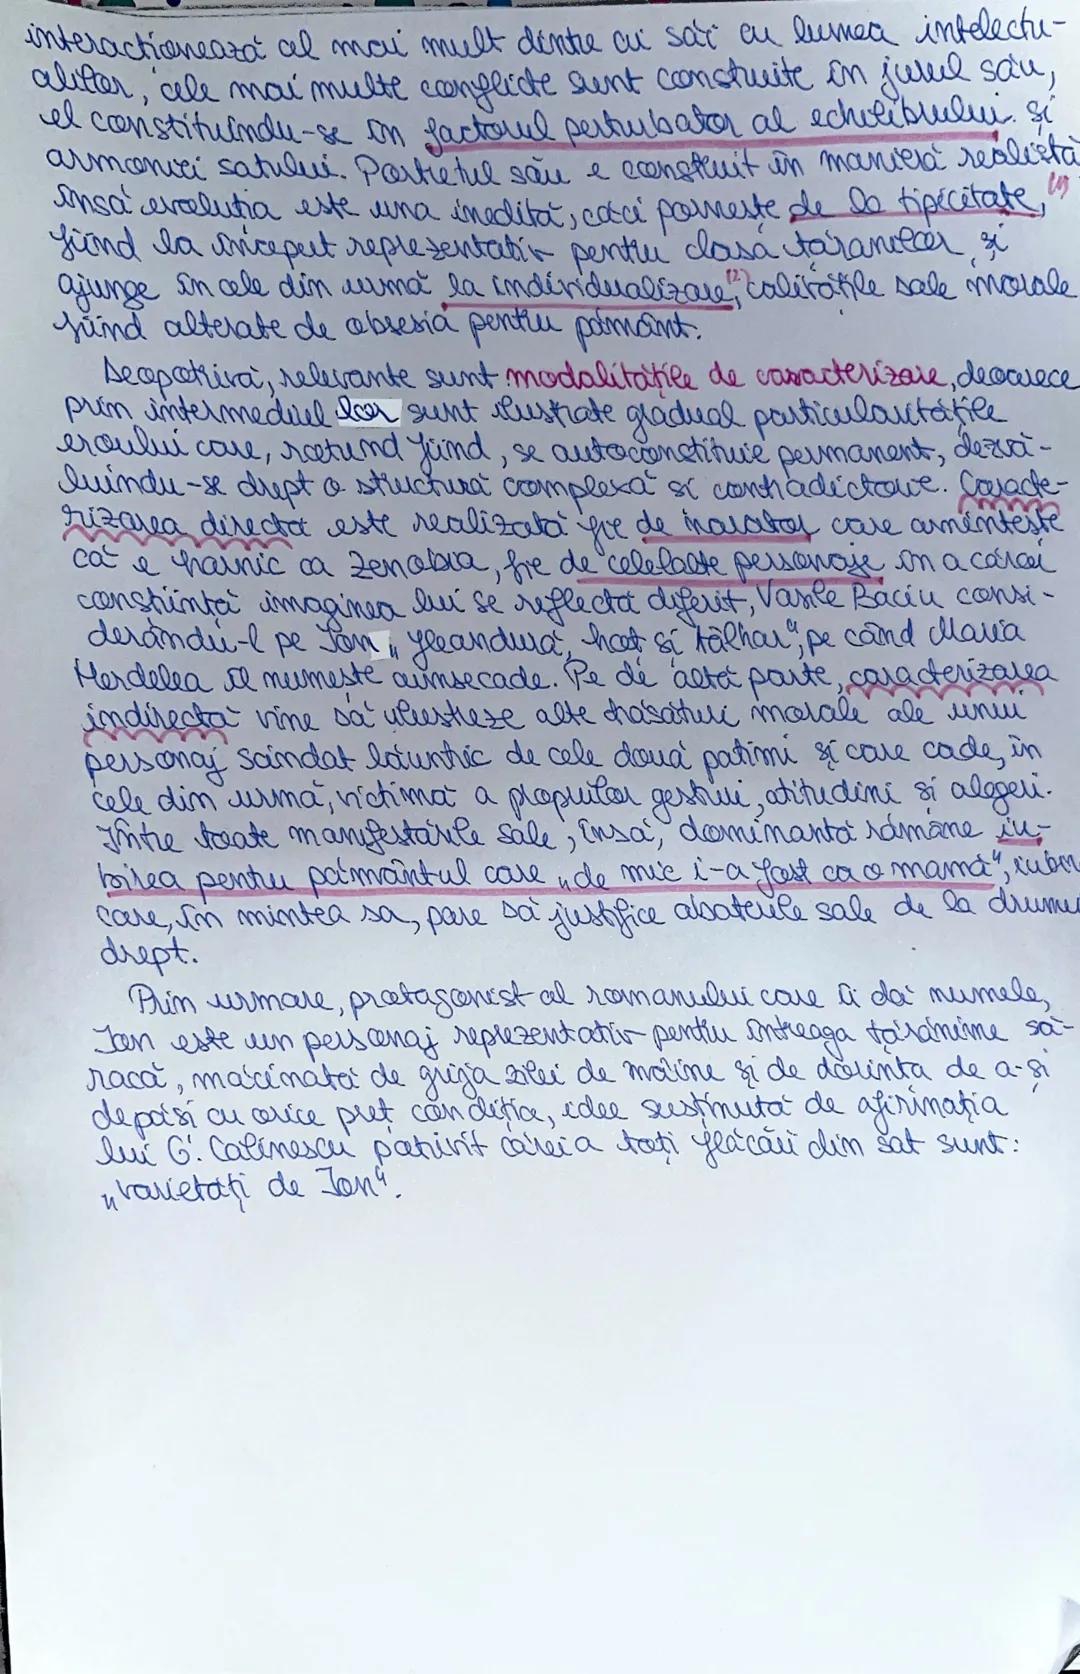 interacționează cel mai mult dintre ai săi cu lumea intelectu-
alilor, cele mai multe conflicte sunt construite în jurul său,
el constituindu-se în factorul perturbator al echilibrului și
armoniei satului. Portretul său e construit în manieră realistă
însă evoluția este una inedită, căci pornește de la tipicitate, (1)
fiind la început reprezentativ pentru clasa țăranilor, și
ajunge în cele din urmă la individualizare, (2) calitățile sale morale
fiind alterate de obsesia pentru pământ.
Deopotrivă, relevante sunt modalitățile de caracterizare, deoarece
prin intermediul lor sunt ilustrate gradual particularitățile
eroului care, rotund fiind, se autoconstituie permanent, dezvă-
luindu-se drept o structură complexă și contradictorie. Caracte-
rizarea directă este realizată fie de narator care amintește
că e harnic ca Zenobia, fie de celelalte personaje în a căror
conștiință imaginea lui se reflectă diferit, Vasile Baciu consi-
derându-l pe Ion „fleandură, hoț și tâlhar", pe când Maria
Herdelea îl numește cumsecade. Pe de altă parte, caracterizarea
indirectă vine să ilustreze alte trăsături morale ale unui
personaj scindat lăuntric de cele două patimi și care cade, în
cele din urmă, victimă a propriilor gesturi, atitudini și alegeri.
Între toate manifestările sale, însă, dominantă rămâne iu-
birea pentru pământul care „de mic i-a fost ca o mamă", iubire
care, în mintea sa, pare să justifice abaterile sale de la drumul
drept.
Prin urmare, protagonist al romanului care îi dă numele,
Ion este un personaj reprezentativ pentru întreaga țărănime să-
racă, măcinată de grija zilei de mâine și de dorința de a-și
depăși cu orice preț condiția, idee susținută de afirmația
lui G. Călinescu potrivit căreia toți flăcăii din sat sunt:
„varietăți de Ion".